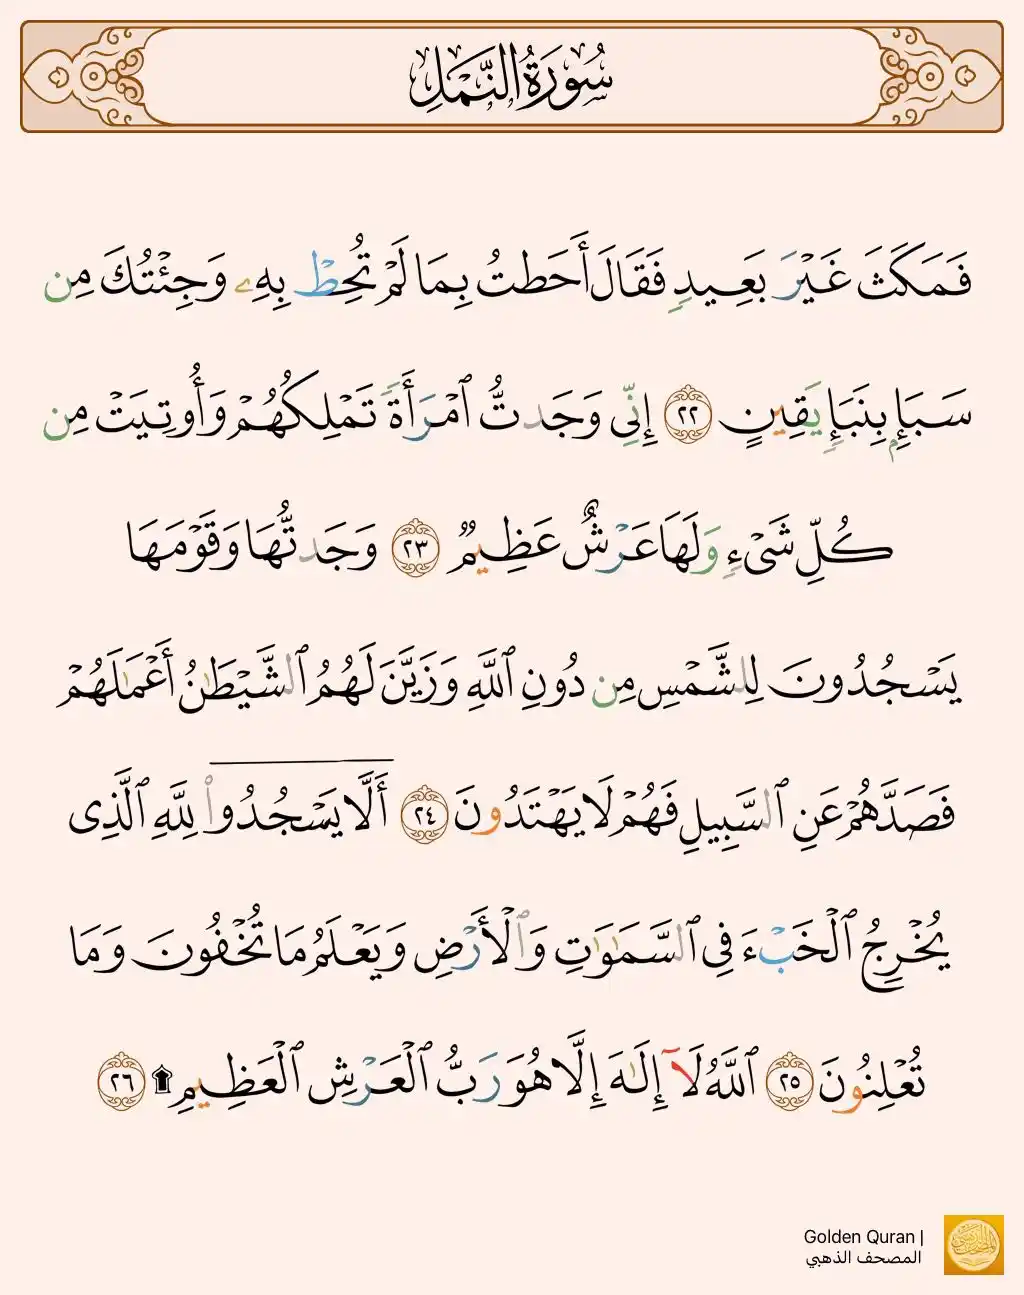 سُورَةُ النَّمۡلِ
فَمَكَثَ غَيۡرَ بَعِيدٖ فَقَالَ أَحَطتُ بِمَا لَمۡ تُحِطۡ بِهِۦ وَجِئۡتُكَ مِن
سَبَإِۭ بِنَبَإٖ يَقِينٍ ٢٢ إِنِّي وَجَدتُّ ٱمۡرَأَةٗ تَمۡلِكُهُمۡ وَأُوتِيَتۡ مِن
كُلِّ شَيۡءٖ وَلَهَا عَرۡشٌ عَظِيمٞ ٢٣ وَجَدتُّهَا وَقَوۡمَهَا
يَسۡجُدُونَ لِلشَّمۡسِ مِن دُونِ ٱللَّهِ وَزَيَّنَ لَهُمُ ٱلشَّيۡطَٰنُ أَعۡمَٰلَهُمۡ
فَصَدَّهُمۡ عَنِ ٱلسَّبِيلِ فَهُمۡ لَا يَهۡتَدُونَ ٢٤ أَلَّا يَسۡجُدُواْ لِلَّهِ ٱلَّذِي
يُخۡرِجُ ٱلۡخَبۡءَ فِي ٱلسَّمَٰوَٰتِ وَٱلۡأَرۡضِ وَيَعۡلَمُ مَا تُخۡفُونَ وَمَا
تُعۡلِنُونَ ٢٥ ٱللَّهُ لَآ إِلَٰهَ إِلَّا هُوَ رَبُّ ٱلۡعَرۡشِ ٱلۡعَظِيمِ۩ ٢٦
Golden Quran |
المصحف الذهبي